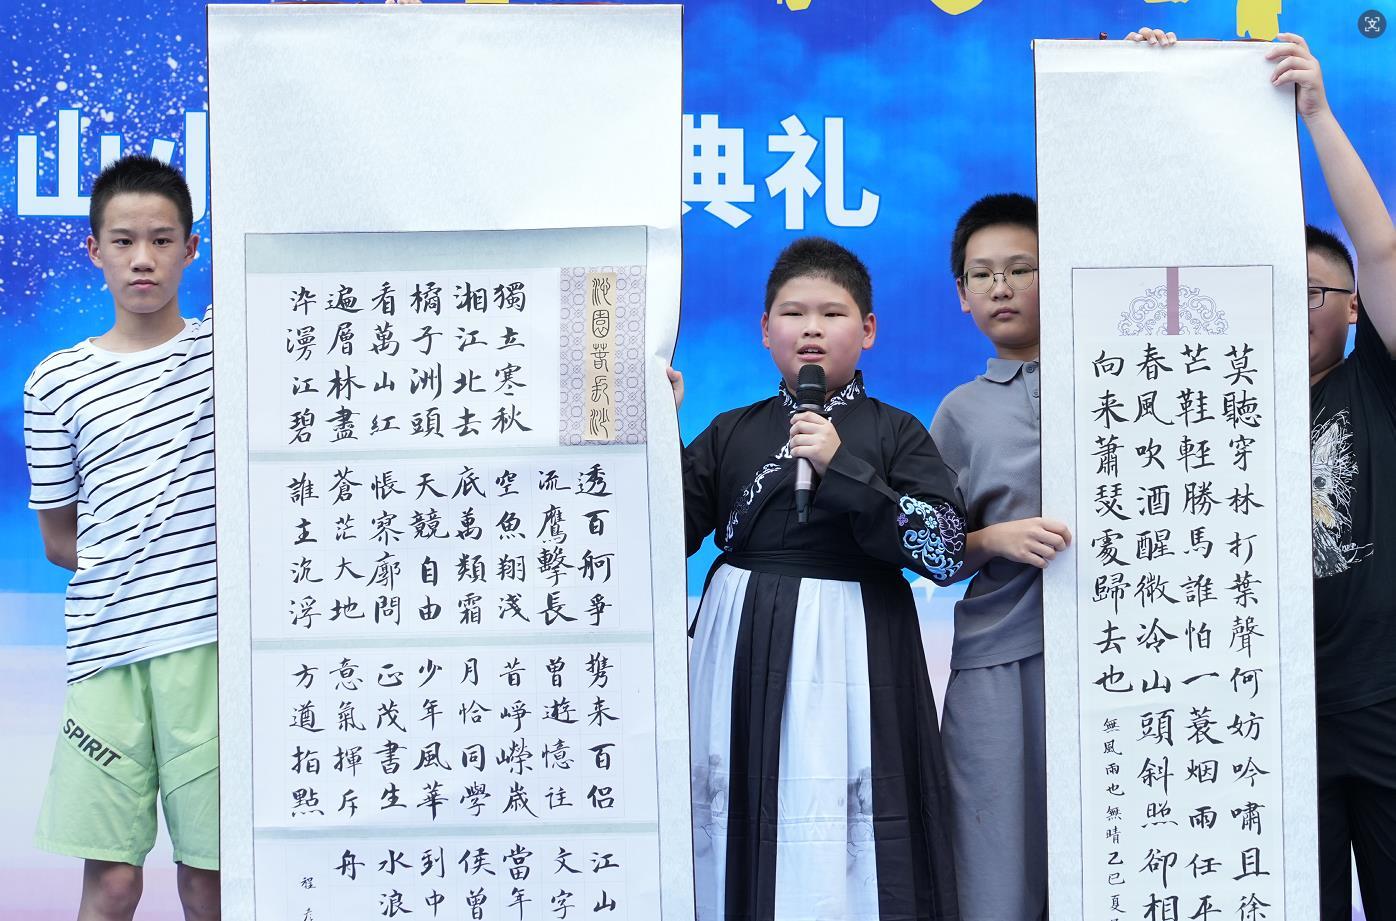 山
典礼
SPIRIT
沁園春長沙
獨立寒秋
湘江北去
橘子洲頭
看萬山紅
遍層林盡
染漫江碧
透百舸爭
流鷹擊長
空魚翔淺
底萬類霜
天競自由
悵寥廓問
蒼茫大地
誰主沉浮
携来百侣
曾遊憶往
昔崢嶸歲
月恰同學
少年風華
正茂書生
意氣揮斥
方遒指點
江山
文字
當年
侯曾
到中
水浪
舟
程
莫聽穿林打葉聲何妨吟嘯且徐
芒鞋輕勝馬誰怕一蓑烟雨任平
春風吹酒醒微冷山頭斜照卻相
向来蕭瑟處歸去也
無風雨也無晴乙巳夏